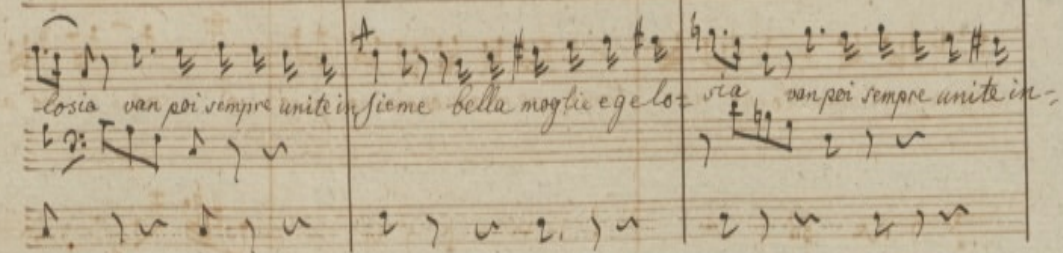 losia van poi sempre unite in sieme bella moglie e gelo= sia van poi sempre unite in=